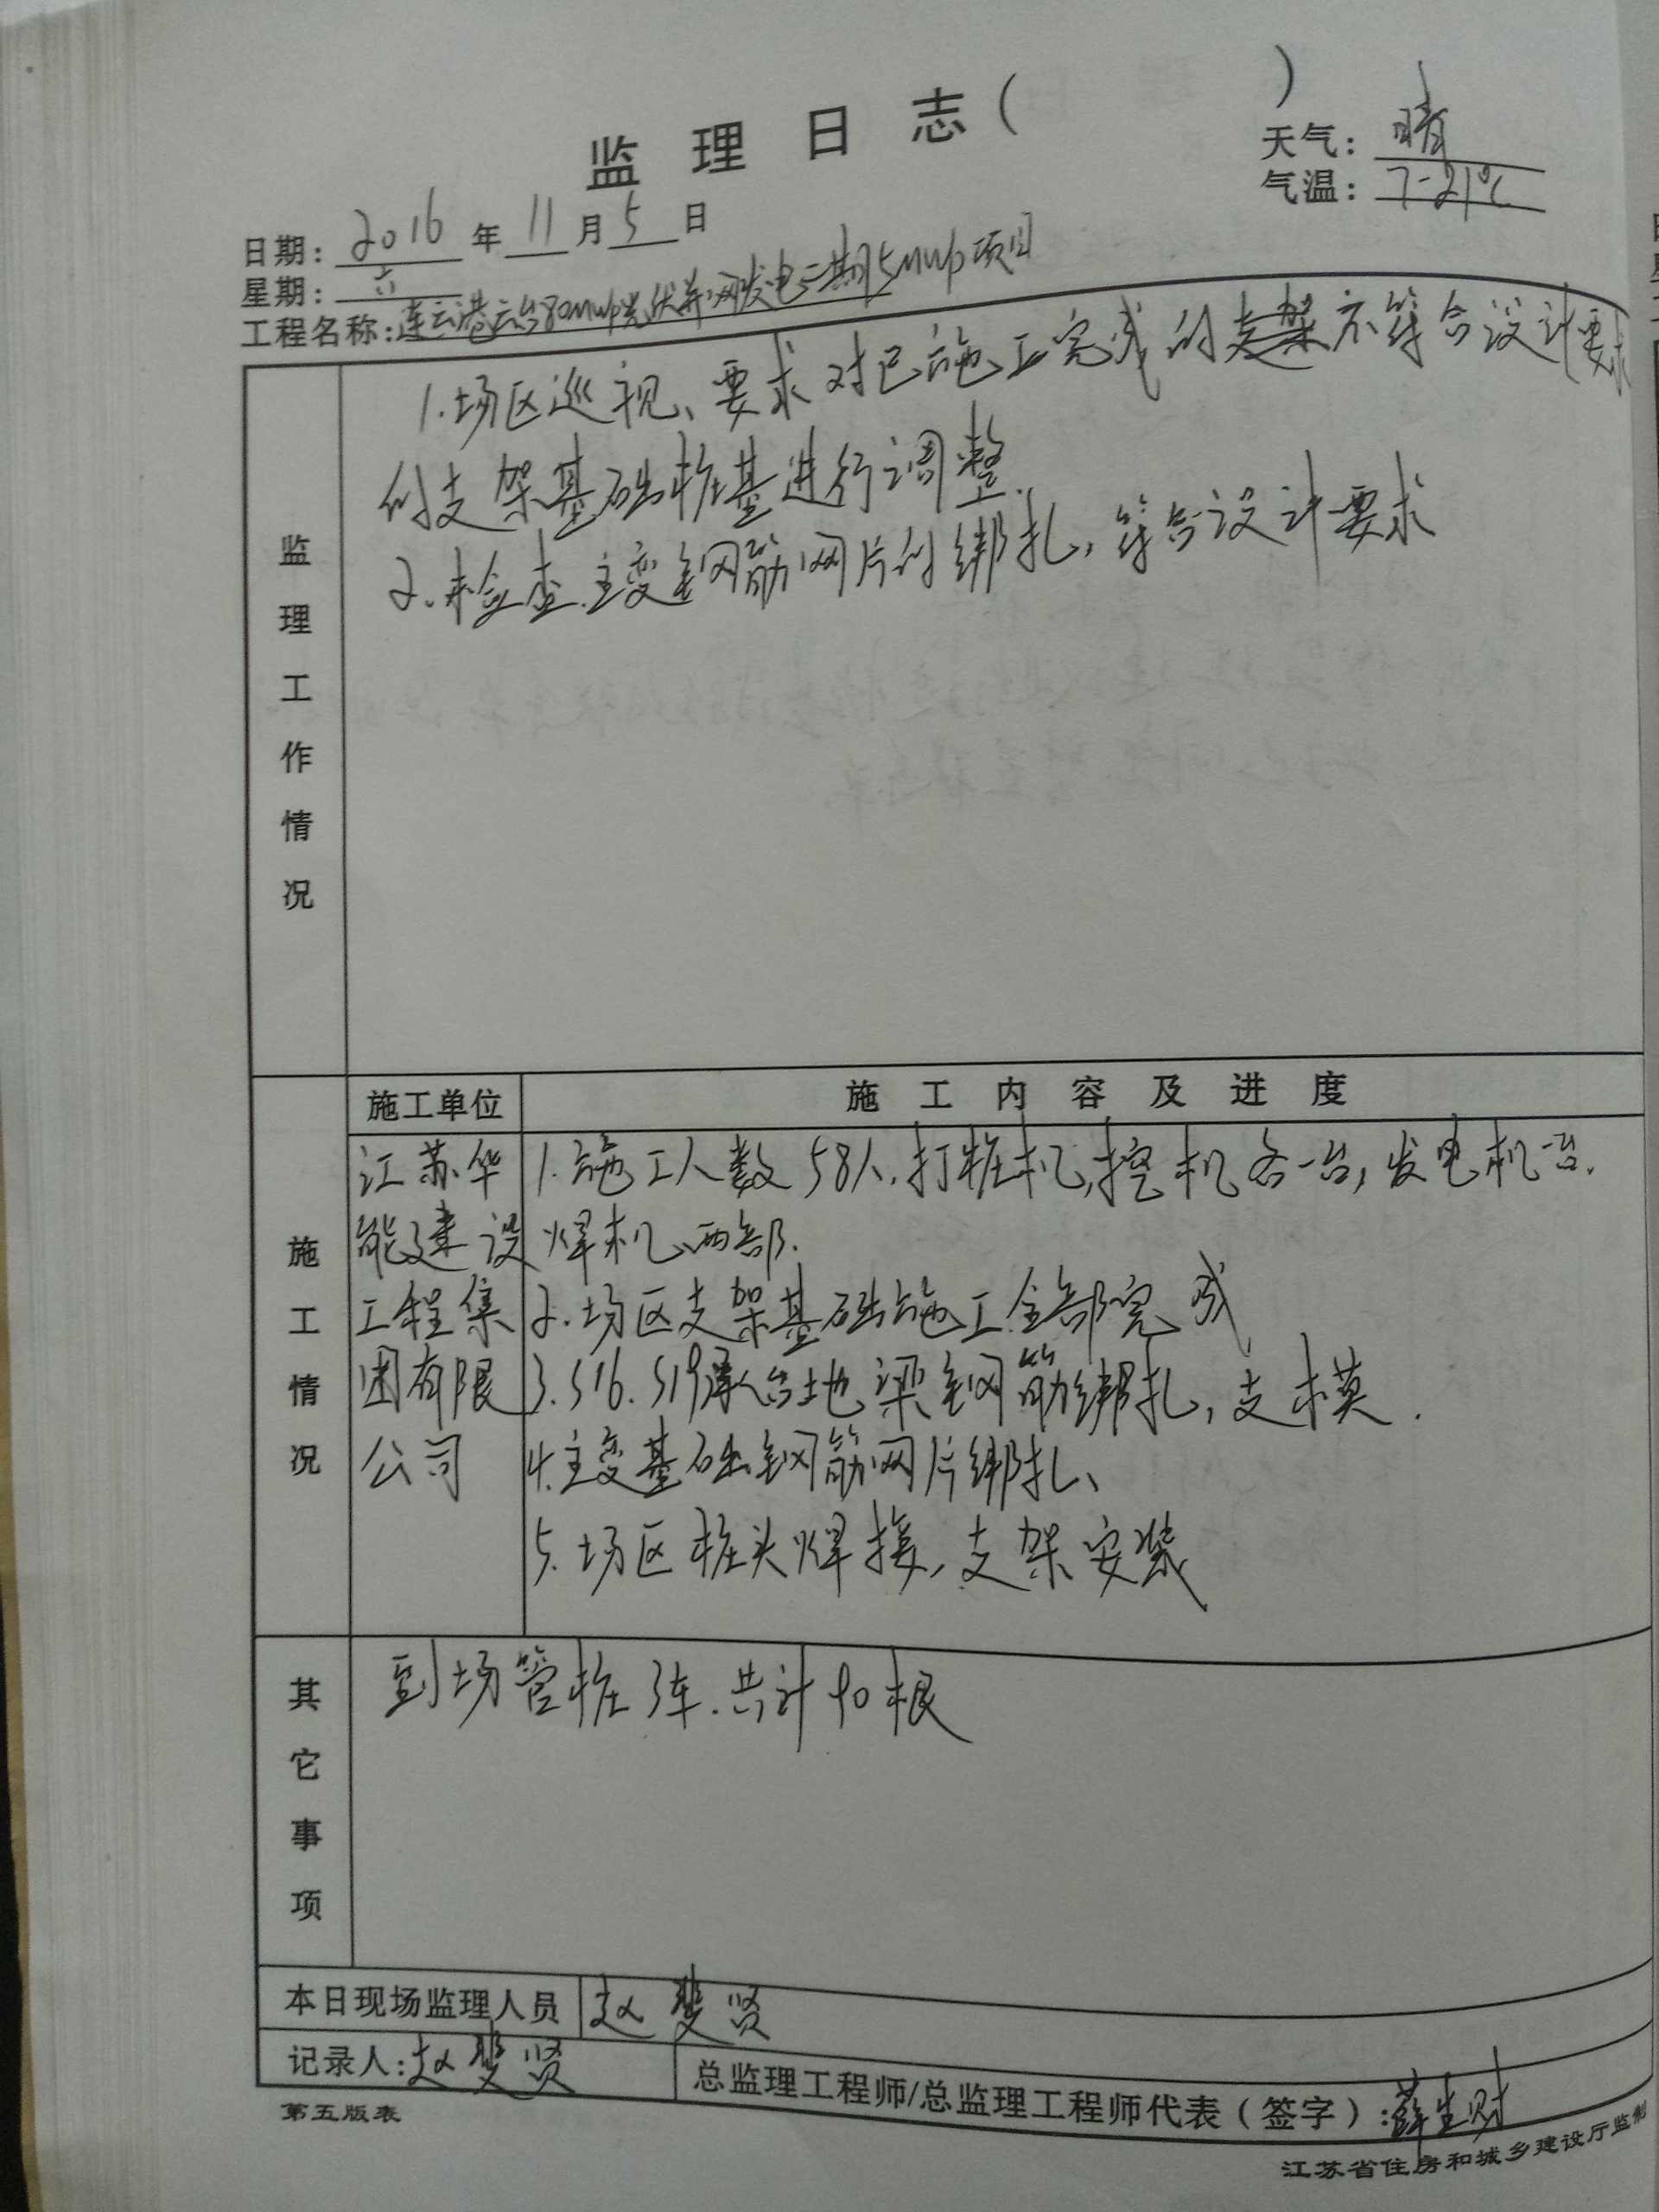 监理日志（ ）
天气：晴
气温：7-21℃
日期：2016年11月5日
星期：六
工程名称：连云港云台80MWp光伏并网发电二期5MWp项目
监理工作情况
1.场区巡视、要求对已施工完成的支架不符合设计要求
的支架基础桩基进行调整.
2.检查主变钢筋网片的绑扎，符合设计要求
施工单位 施工内容及进度
施工情况
江苏华
能建设
工程集
团有限
公司
1.施工人数58人.打桩机,挖机各一台,发电机一台.
焊机两部.
2.场区支架基础施工全部完成
3.S16.S19承台地梁钢筋绑扎,支模.
4.主变基础钢筋网片绑扎、
5.场区桩头焊接,支架安装
其它事项
到场管桩3车.共计90根
本日现场监理人员 赵斐贤
记录人：赵斐贤 总监理工程师/总监理工程师代表（签字）：薛生财
第五版表
江苏省住房和城乡建设厅监制